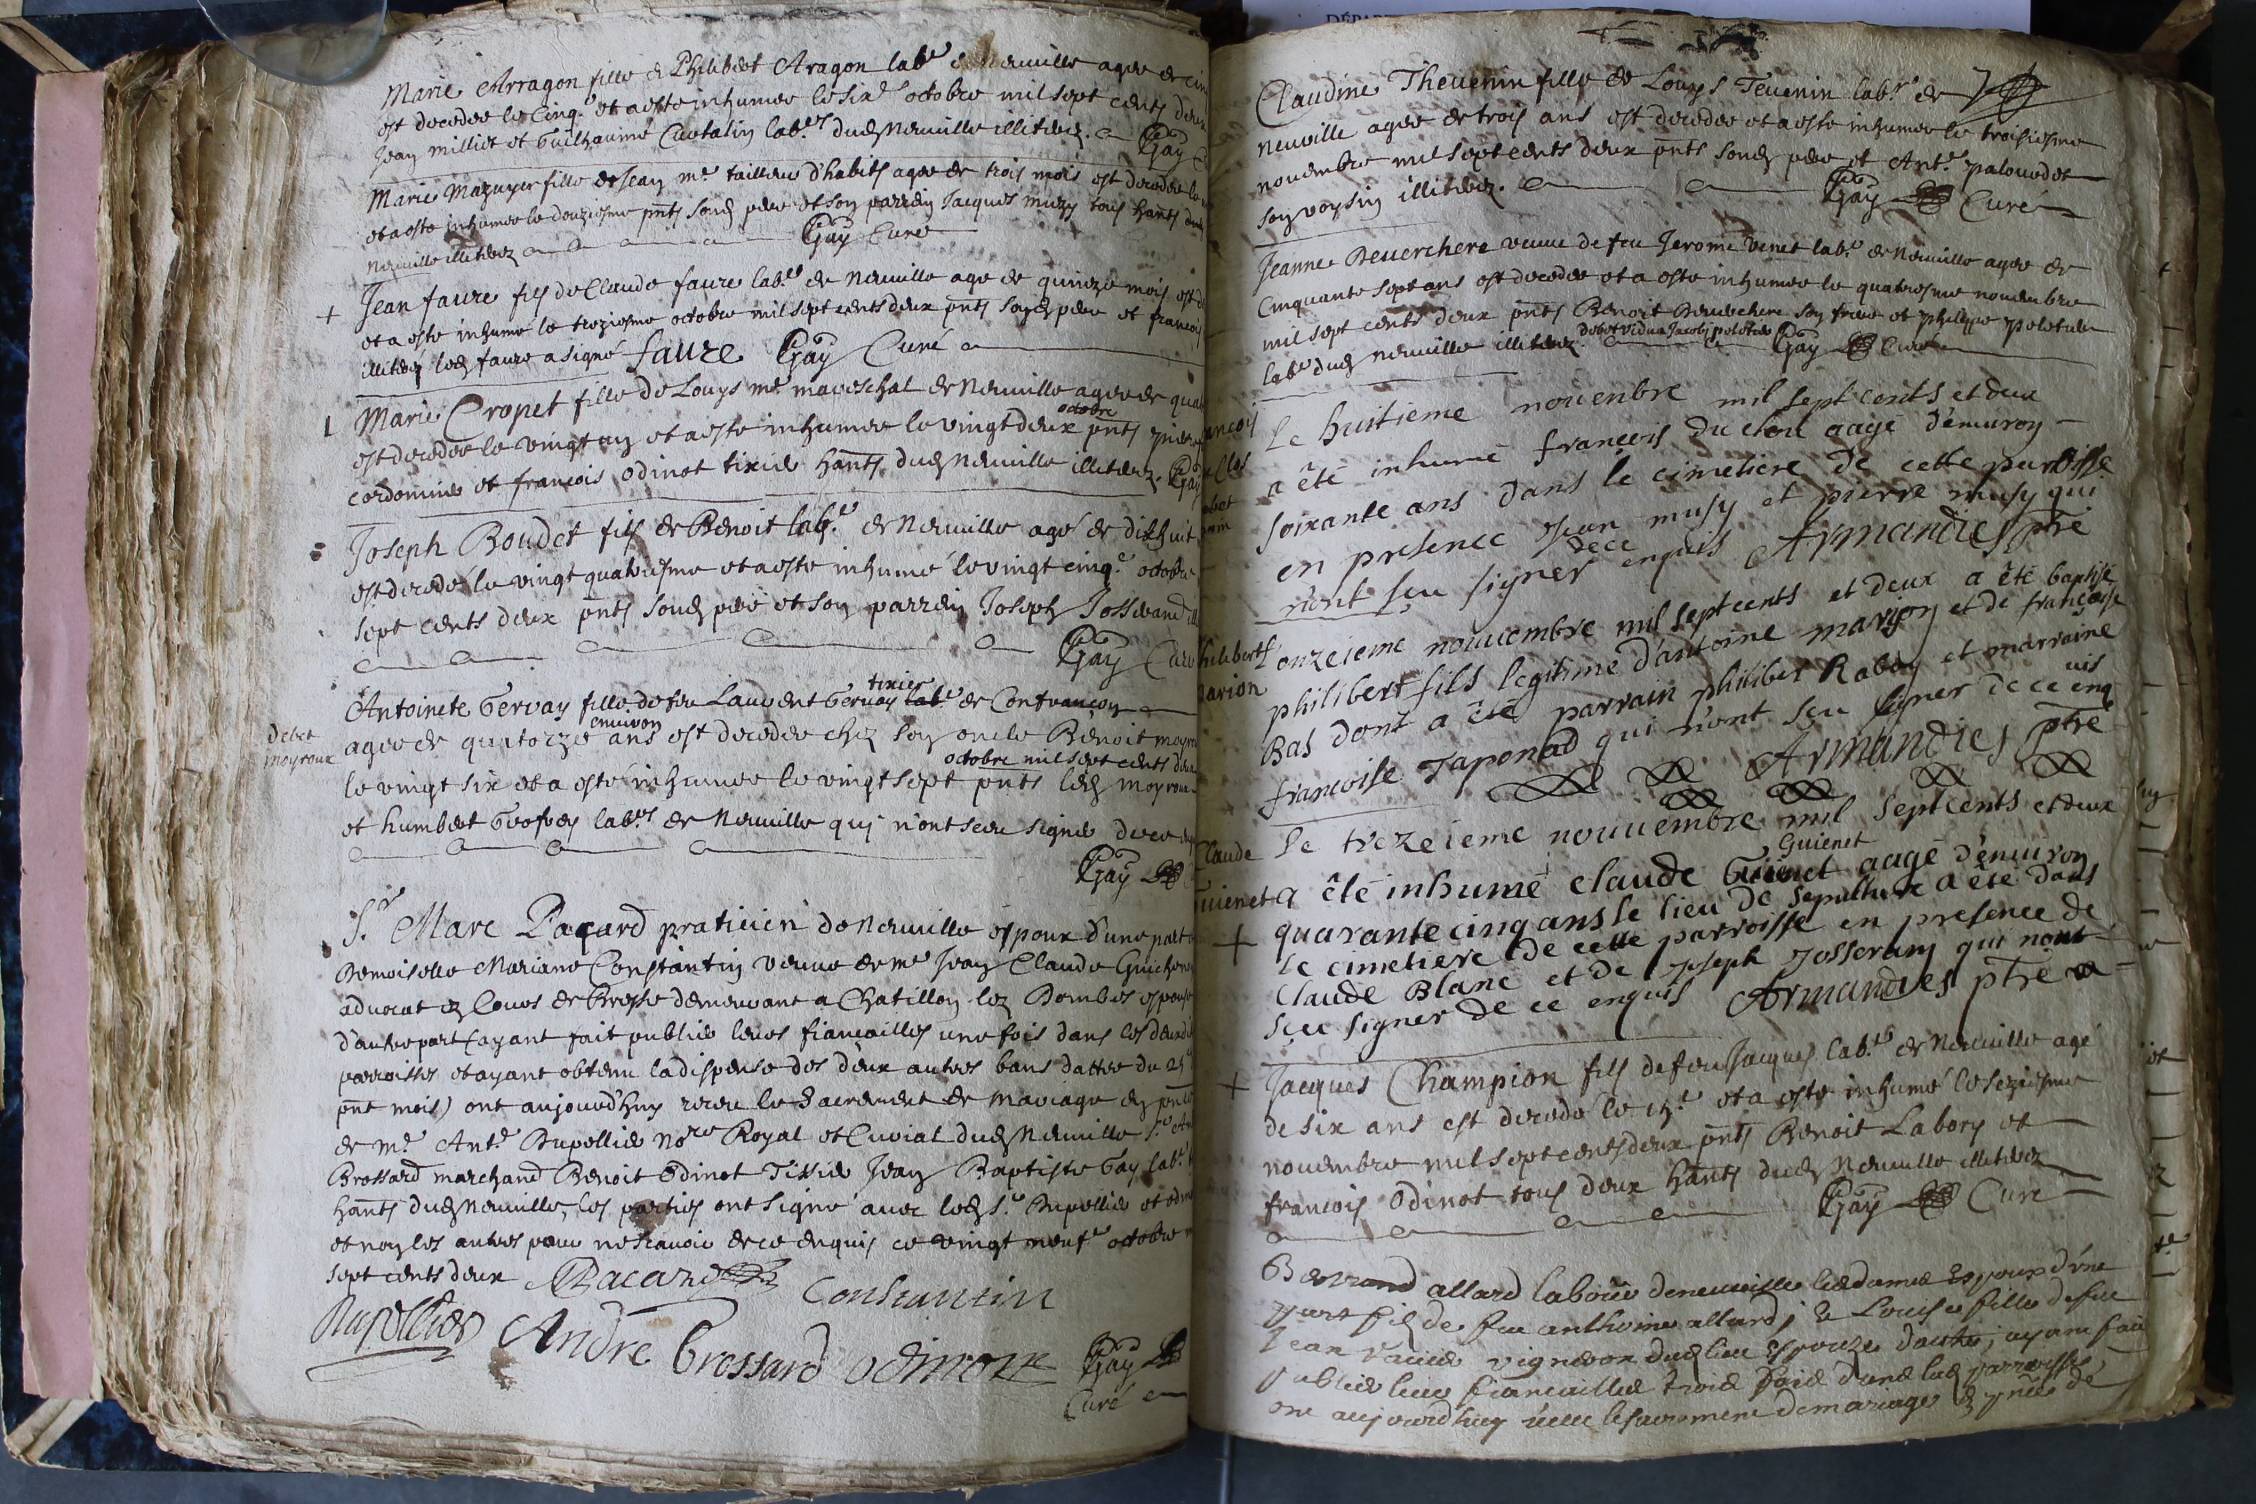 Marie Arragon fille de Philibert Aragon lab.r de Neuville agee de cin
est decedee le cinq.e et a esté inhumee le six.e octobre mil sept cents deux
Jean Milliet et Guilhaume Cartalin lab.rs dud Neuville illiterez. Gay
Marie Mazuyer fille de Jean m.e tailleur d'habits agee de trois mois est decedee le
et a esté inhumee le douziesme pnts sond pere et son parrein Jacques muzy tous hants dud
Neuville illiterez Gay Curé
+ Jean faure fils de Claude faure lab.r de Neuville age de quinze mois est de
et a esté inhumé le treziesme octobre mil sept cents deux pnts sond pere et francois
illiteré led faure a signé faure Gay Curé
Marie Cropet fille de Louys m.e mareschal de Neuville agee de qua
octobre
est decedee le vingt un et a esté inhumee le vingt deux pnts
cordonnier et francois Odinot tixier hants dud Neuville illiterez. Gay
Joseph Boudet fils de Benoit lab.r de Neuville agé de dixhuit
est decedé le vingt quatriesme et a esté inhumé le vingt cinq.e octobre
sept cents deux pnts sond pere et son parrein Joseph Josserand
Gay Curé
tixier
Antoinete Gervay fille de feu Laurent Gervay lab.r de Confrançon
debet
moyroux
environ
agee de quatorze ans est decedee chez son oncle Benoit moyro
octobre mil sept cents deux
le vingt six et a esté inhumee le vingt sept pnts led moyrou
et humbert Geofrey lab.rs de Neuville qui n'ont sceu signer de ce
Gay
S.r Marc Pacard praticien de Neuville espoux d'une part
Demoiselle Mariane Constantin veuve de m.e Jean Claude Guichenon
advocat ez Cours de Bresse demeurant a Chatillon lez Dombes espouse
d'autre part (ayant fait publier leurs fiancailles une fois dans les deux
parroisses et ayant obtenu la dispense des deux autres bans dattee du 25
pnt mois) ont aujourd'huy receu le Sacrement de mariage en pnce
de m.e Ant.e Dupellier no.re Royal et Curial dud Neuville S.r
Brossard marchand Benoit Odinot Tissier Jean Baptiste Gay lab.r
hants dud Neuville, les parties ont signé avec led S.r Dupellier et Odinot
et non les autres pour ne scavoir de ce enquis ce vingt neuf.e octobre
sept cents deux Pacard Constantin
Dupellier André Brossard Odinot Gay
Curé
Claudine Thevenin fille de Louys Tevenin lab.r de
Neuville agee de trois ans est decedee et a esté inhumee le troisiesme
novembre mil sept cents deux pnts sond pere et Ant.e palouedet
son voysin illiterez. Gay Curé
Jeanne Beverchere veuve de feu Jerome venet lab.r de Neuville agee de
cinquante sept ans est decedee et a esté inhumee le quatriesme novembre
mil sept cents deux pnts Benoit Beverchere son frere et philippe
debet vidua Jacobi
lab.r dud Neuville illiterez Gay Curé
Le huitieme nouenbre mil sept cents et deux
a êté inhumé françois du clou aagé d'enuiron
soixante ans dans le cimetiere de cette parroisse
en presence Jean musy et pierre musy qui
de ce
n'ont sçu signer enquis Armandies ptre
philibert
marion
L'onzeieme nouuembre mil sept cents et deux a êté baptisé
philibert fils legitime d'antoine maryon et de françoise
Bas dont a êté parrain philibert Rabuy et marraine
uis
françoise Taponad qui n'ont sçu signer de ce enq
Armandies ptre
Le trezeieme nouuembre mil septcents et deux
Claude
Guienet
Guienet
a êté inhumé claude Guienet aagé d'enuiron
quarante cinq ans le lieu de sepulture a êté dans
+ le cimetiere de cette parroisse en presence de
claude Blanc et de Joseph Josseran qui n'ont
sçu signer de ce enquis Armandies ptre
+ Jacques Champion fils de feu Jacques lab.r de Neuville agé
de six ans est decedé le 15.e et a esté inhumé le seziesme
novembre mil sept cents deux pnts Benoit Labory et
francois Odinot tous deux hants dud Neuville illiterez
Gay Curé
Bertrand allard laboure deneuville espoux d'une
part fils de feu anthoine allard, & Louise fille de feu
Jean vigneron dud lieu espouze d'autre, ayant fait
publier leur fiancailles trois fois dans lad parroisse,
ont aujourd'huy receu le sacrement de mariage